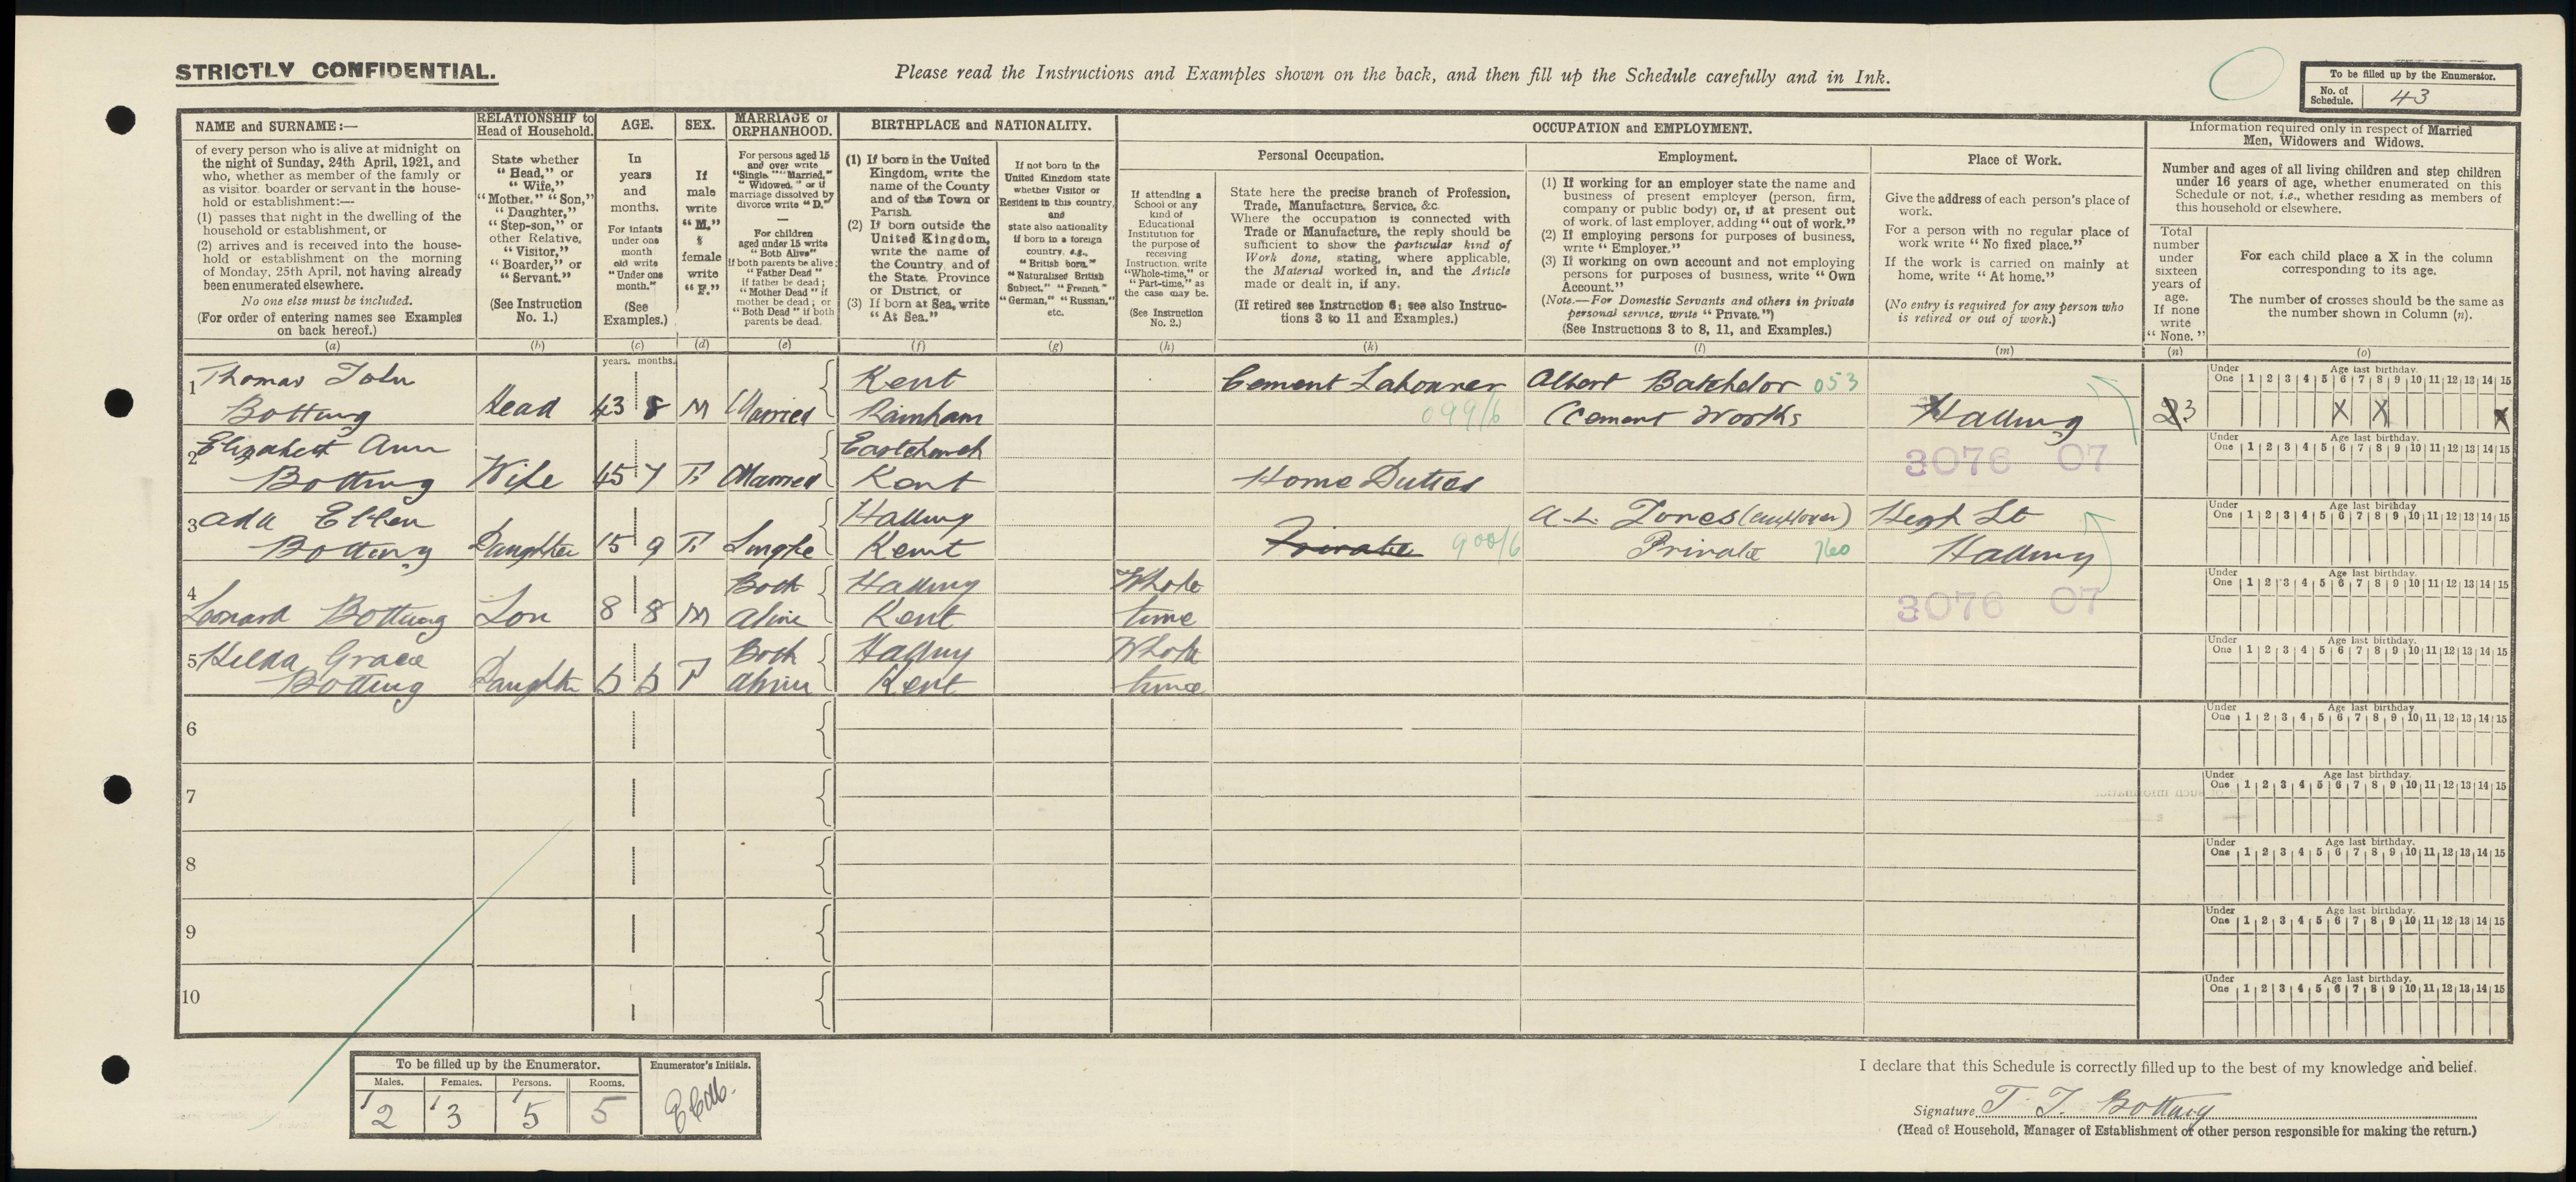 STRICTLY CONFIDENTIAL.
Please read the Instructions and Examples shown on the back, and then fill up the Schedule carefully and in Ink.
To be filled up by the Enumerator.
No. of Schedule. 43
NAME and SURNAME:—
of every person who is alive at midnight on
the night of Sunday, 24th April, 1921, and
who, whether as member of the family or
as visitor, boarder or servant in the house-
hold or establishment:—
(1) passes that night in the dwelling of the
household or establishment, or
(2) arrives and is received into the house-
hold or establishment on the morning
of Monday, 25th April, not having already
been enumerated elsewhere.
No one else must be included.
(For order of entering names see Examples
on back hereof.)
(a)
RELATIONSHIP to
Head of Household.
State whether
"Head," or
"Wife,"
"Mother," "Son,"
"Daughter,"
"Step-son," or
other Relative,
"Visitor,"
"Boarder," or
"Servant."
(See Instruction
No. 1.)
(b)
AGE.
In
years
and
months.
For infants
under one
month
old write
"Under one
month."
(See
Examples.)
(c)
SEX.
If
male
write
"M."
female
write
"F."
(d)
MARRIAGE or
ORPHANHOOD.
For persons aged 15
and over write
"Single," "Married,"
"Widowed," or if
marriage dissolved by
divorce write "D."
—
For children
aged under 15 write
"Both Alive"
if both parents be alive;
"Father Dead"
if father be dead;
"Mother Dead" if
mother be dead; or
"Both Dead" if both
parents be dead.
(e)
BIRTHPLACE and NATIONALITY.
(1) If born in the United
Kingdom, write the
name of the County
and of the Town or
Parish.
(2) If born outside the
United Kingdom,
write the name of
the Country, and of
the State, Province
or District, or
(3) If born at Sea, write
"At Sea."
(f)
If not born in the
United Kingdom state
whether Visitor or
Resident in this country,
and
state also nationality
if born in a foreign
country, e.g.,
"British born."
"Naturalised British
Subject," "French,"
"German," "Russian,"
etc.
(g)
OCCUPATION and EMPLOYMENT.
If attending a
School or any
kind of
Educational
Institution for
the purpose of
receiving
Instruction, write
"Whole-time," or
"Part-time," as
the case may be.
(See Instruction
No. 2.)
(h)
Personal Occupation.
State here the precise branch of Profession,
Trade, Manufacture, Service, &c.
Where the occupation is connected with
Trade or Manufacture, the reply should be
sufficient to show the particular kind of
Work done, stating, where applicable,
the Material worked in, and the Article
made or dealt in, if any.
(If retired see Instruction 6; see also Instruc-
tions 3 to 11 and Examples.)
(k)
Employment.
(1) If working for an employer state the name and
business of present employer (person, firm,
company or public body) or, if at present out
of work, of last employer, adding "out of work."
(2) If employing persons for purposes of business,
write "Employer."
(3) If working on own account and not employing
persons for purposes of business, write "Own
Account."
(Note.—For Domestic Servants and others in private
personal service, write "Private.")
(See Instructions 3 to 8, 11, and Examples.)
(l)
Place of Work.
Give the address of each person's place of
work.
For a person with no regular place of
work write "No fixed place."
If the work is carried on mainly at
home, write "At home."
(No entry is required for any person who
is retired or out of work.)
(m)
Information required only in respect of Married
Men, Widowers and Widows.
Number and ages of all living children and step children
under 16 years of age, whether enumerated on this
Schedule or not, i.e., whether residing as members of
this household or elsewhere.
Total
number
under
sixteen
years of
age.
If none
write
"None."
(n)
For each child place a X in the column
corresponding to its age.
The number of crosses should be the same as
the number shown in Column (n).
(o)
years. months.
1 Thomas John Botting Head 43 8 M Married Kent Rainham Cement Labourer 099/6 Albert Batchelor 053 Cement Works Halling 3
Under One 1 2 3 4 5 6 7 8 9 10 11 12 13 14 15 Age last birthday.
X X X
2 Elizabeth Ann Botting Wife 45 7 F Married Eastchurch Kent Home Duties 3076 07
Under One 1 2 3 4 5 6 7 8 9 10 11 12 13 14 15 Age last birthday.
3 Ada Ellen Botting Daughter 15 9 F Single Halling Kent Private 900/6 A. L. Jones (employer) Private 760 High St Halling
Under One 1 2 3 4 5 6 7 8 9 10 11 12 13 14 15 Age last birthday.
4 Leonard Botting Son 8 8 M Both Alive Halling Kent Whole time 3076 07
Under One 1 2 3 4 5 6 7 8 9 10 11 12 13 14 15 Age last birthday.
5 Hilda Grace Botting Daughter F Both Alive Halling Kent Whole time
Under One 1 2 3 4 5 6 7 8 9 10 11 12 13 14 15 Age last birthday.
6
Under One 1 2 3 4 5 6 7 8 9 10 11 12 13 14 15 Age last birthday.
7
Under One 1 2 3 4 5 6 7 8 9 10 11 12 13 14 15 Age last birthday.
8
Under One 1 2 3 4 5 6 7 8 9 10 11 12 13 14 15 Age last birthday.
9
Under One 1 2 3 4 5 6 7 8 9 10 11 12 13 14 15 Age last birthday.
10
Under One 1 2 3 4 5 6 7 8 9 10 11 12 13 14 15 Age last birthday.
To be filled up by the Enumerator.
Males. Females. Persons. Rooms.
2 3 5 5
Enumerator's Initials.
I declare that this Schedule is correctly filled up to the best of my knowledge and belief.
Signature T. J. Botting
(Head of Household, Manager of Establishment or other person responsible for making the return.)